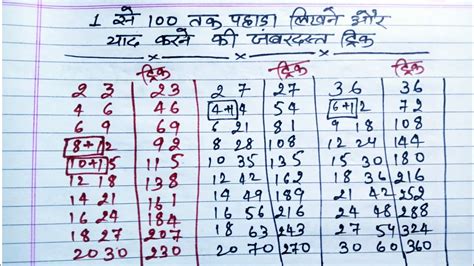 1 से 100 तक पहाड़ा लिखने और
याद करने की जबरदस्त ट्रिक
ट्रिक ट्रिक ट्रिक
2 3 23 2 7 27 3 6 36
4 6 46 4+1 4 54 6+1 2 72
6 9 69 6 21 81 9 18 108
8+1 2 92 8 28 108 12 24 144
10+1 5 115 10 35 135 15 30 180
12 18 138 12 42 162 18 36 216
14 21 161 14 49 189 21 42 252
16 24 184 16 56 216 24 48 288
18 27 207 18 63 243 27 54 324
20 30 230 20 70 270 30 60 360